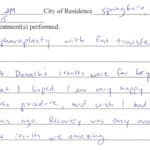 JM City of Residence Springboro
treatment(s) performed:
pharoplasty with fat transfer
Dr. Donath's results were far bey
at I hoped. I am very happy
the procedure, and wish I had
ars ago. Recovery was easy and
e results are amazing.